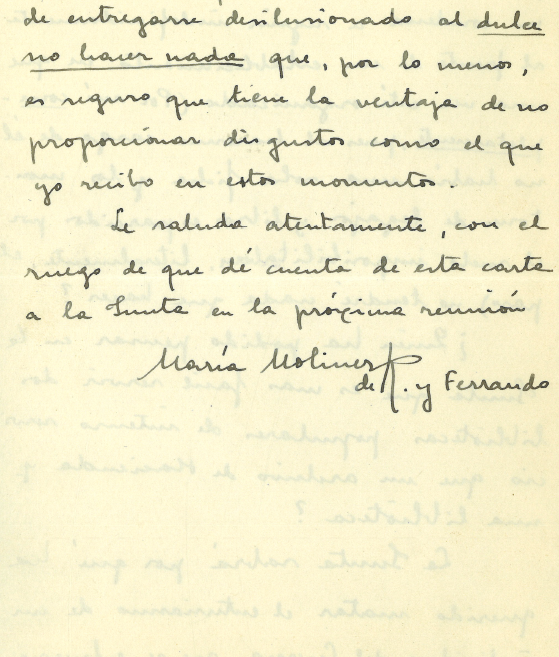 de entregarse desilusionado al dulce
no hacer nada que, por lo menos,
es seguro que tiene la ventaja de no
proporcionar disgustos como el que
yo recibo en estos momentos.
Le saluda atentamente, con el
ruego de que dé cuenta de esta carta
a la Junta en la próxima reunión
María Moliner
de R. y Ferrando